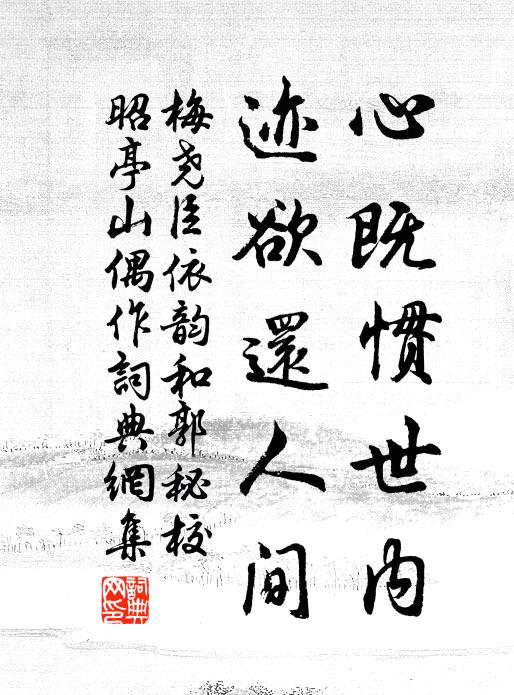 心既慣世内
迹欲還人间
梅尧臣依韵和郭秘校
昭亭山偶作詞典網集
詞典
网印